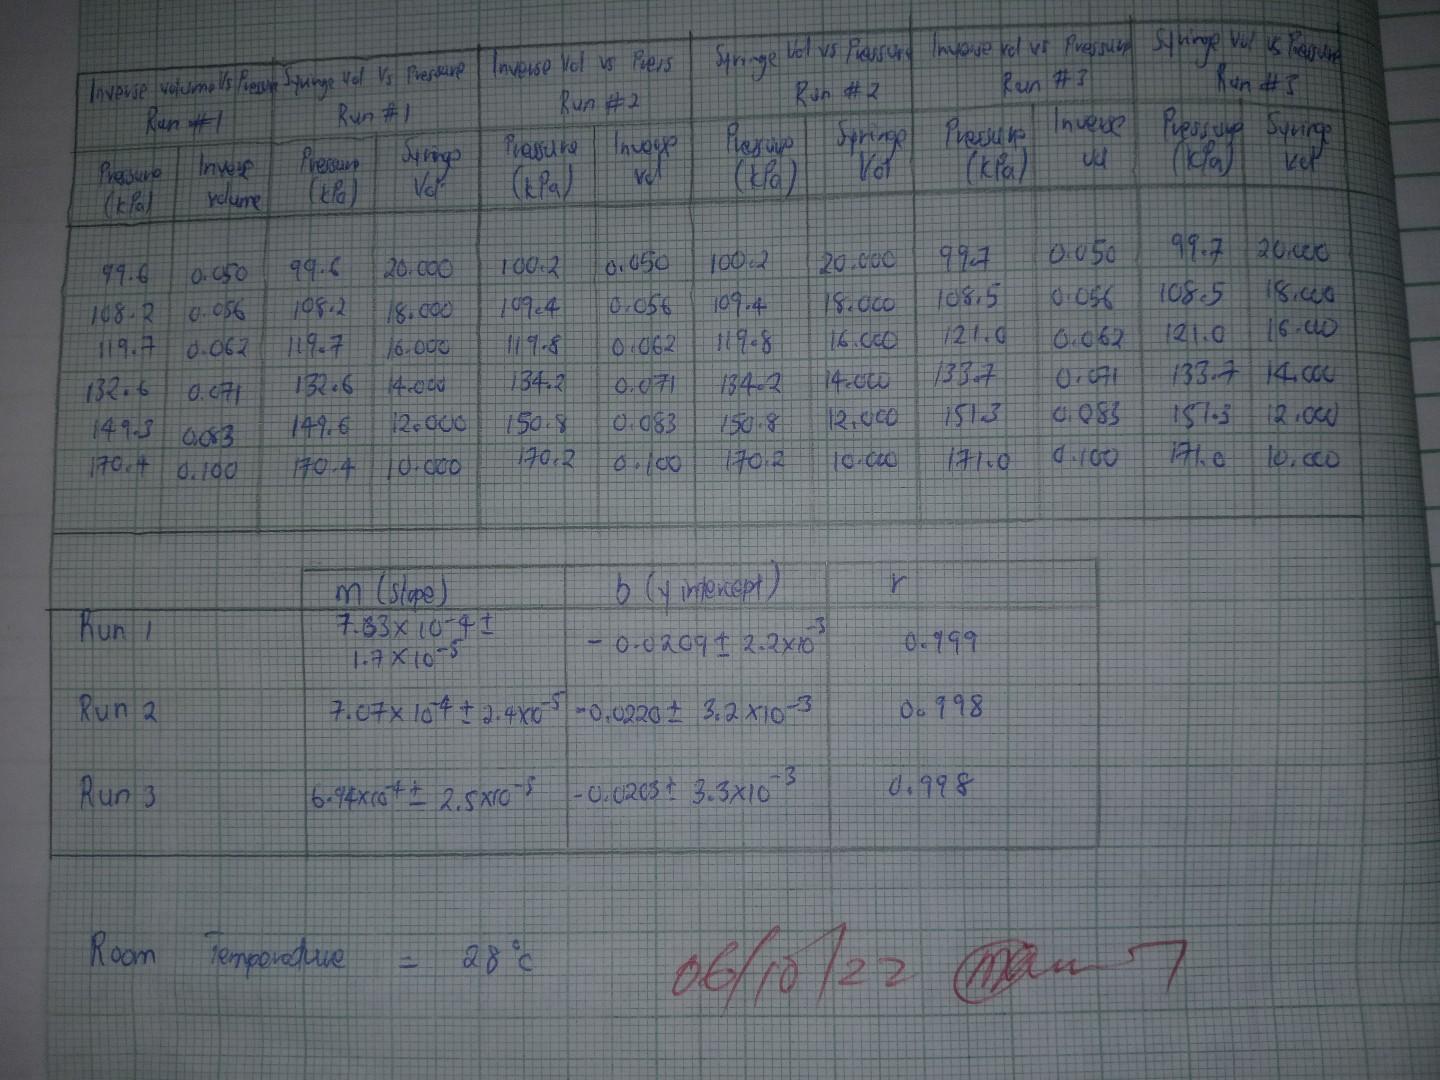 Inverse volume Vs Pressure Syringe Vol Vs Pressure Inverse Vol vs Press Syringe Vol vs Pressure Inverse vol vs Pressure Syringe Vol vs Pressure
Run #1 Run #1 Run #2 Run #2 Run #3 Run #3
Pressure Inverse Pressure Syringe Pressure Inverse Pressure Syringe Pressure Inverse Pressure Syringe
(kPa) volume (kPa) Vol (kPa) vol (kPa) Vol (kPa) vol (kPa) vol
99.6 0.050 99.6 20.000 100.2 0.050 100.2 20.000 99.7 0.050 99.7 20.000
108.2 0.056 108.2 18.000 109.4 0.056 109.4 18.000 108.5 0.056 108.5 18.000
119.7 0.062 119.7 16.000 119.8 0.062 119.8 16.000 121.0 0.062 121.0 16.000
132.6 0.071 132.6 14.000 134.2 0.071 134.2 14.000 133.7 0.071 133.7 14.000
149.3 0.083 149.6 12.000 150.8 0.083 150.8 12.000 151.3 0.083 151.3 12.000
170.4 0.100 170.4 10.000 170.2 0.100 170.2 10.000 171.0 0.100 171.0 10.000
m (slope) b (y intercept) r
Run 1 7.33×10-4 ± 1.7×10-5 - 0.0209 ± 2.2×10-3 0.999
Run 2 7.07×10-4 ± 2.4×10-5 -0.0220 ± 3.2×10-3 0.998
Run 3 6.94×10-4 ± 2.5×10-5 -0.0203 ± 3.3×10-3 0.998
Room Temperature = 28°C
06/10/22